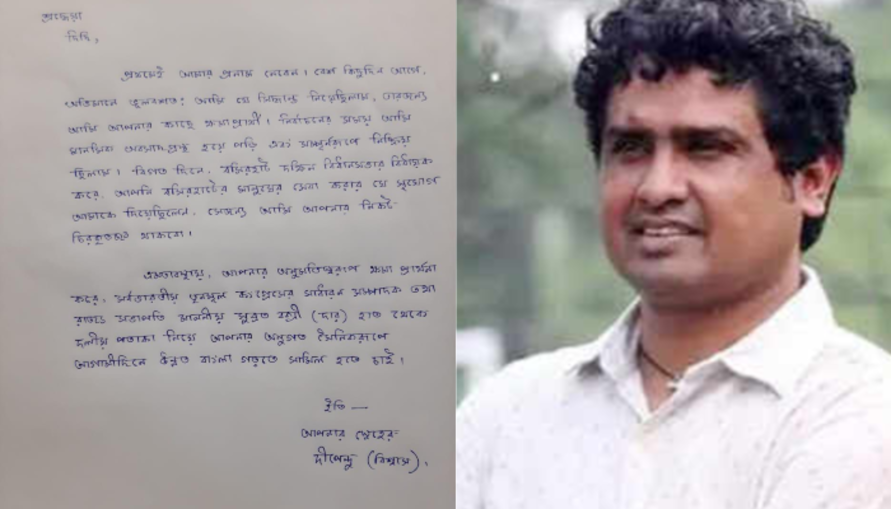 শ্রদ্ধেয়া
দিদি,
প্রথমেই আমার প্রনাম নেবেন। বেশ কিছুদিন আগে,
অভিমানে ভুলবশতঃ আমি যে সিদ্ধান্ত নিয়েছিলাম, তারজন্য
আমি আপনার কাছে ক্ষমাপ্রার্থী। নির্বাচনের সময় আমি
মানসিক অবসাদগ্রস্থ হয়ে পড়ি এবং সম্পূর্নরূপে নিষ্ক্রিয়
ছিলাম। বিগত দিনে, বসিরহাট দক্ষিন বিধানসভার বিধায়ক
করে, আপনি বসিরহাটের মানুষের সেবা করার যে সুযোগ
আমাকে দিয়েছিলেন, সেজন্য আমি আপনার নিকট
চিরকৃতজ্ঞ থাকবো।
এমতাবস্থায়, আপনার অনুমতিস্বরূপে ক্ষমা প্রার্থনা
করে, সর্বভারতীয় তৃনমূল কংগ্রেসের সাধারন সম্পাদক তথা
রাজ্য সভাপতি মাননীয় সুব্রত বক্সী (দার) হাত থেকে
দলীয় পতাকা নিয়ে আপনার অনুগত সৈনিকরূপে
আগামীদিনে উন্নত বাংলা গড়তে সামিল হতে চাই।
ইতি —
আপনার স্নেহের
দীপেন্দু (বিশ্বাস)।